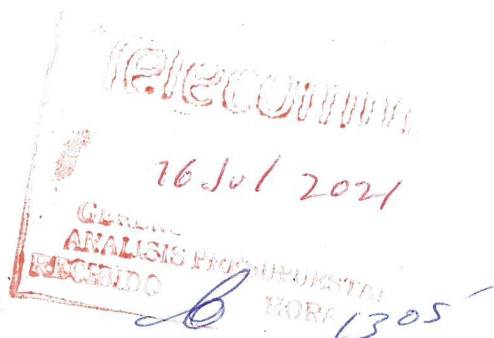 Telecomm
16 Jul 2021
ANALISIS PRESUPUESTAL
RECIBIDO HORA 1305